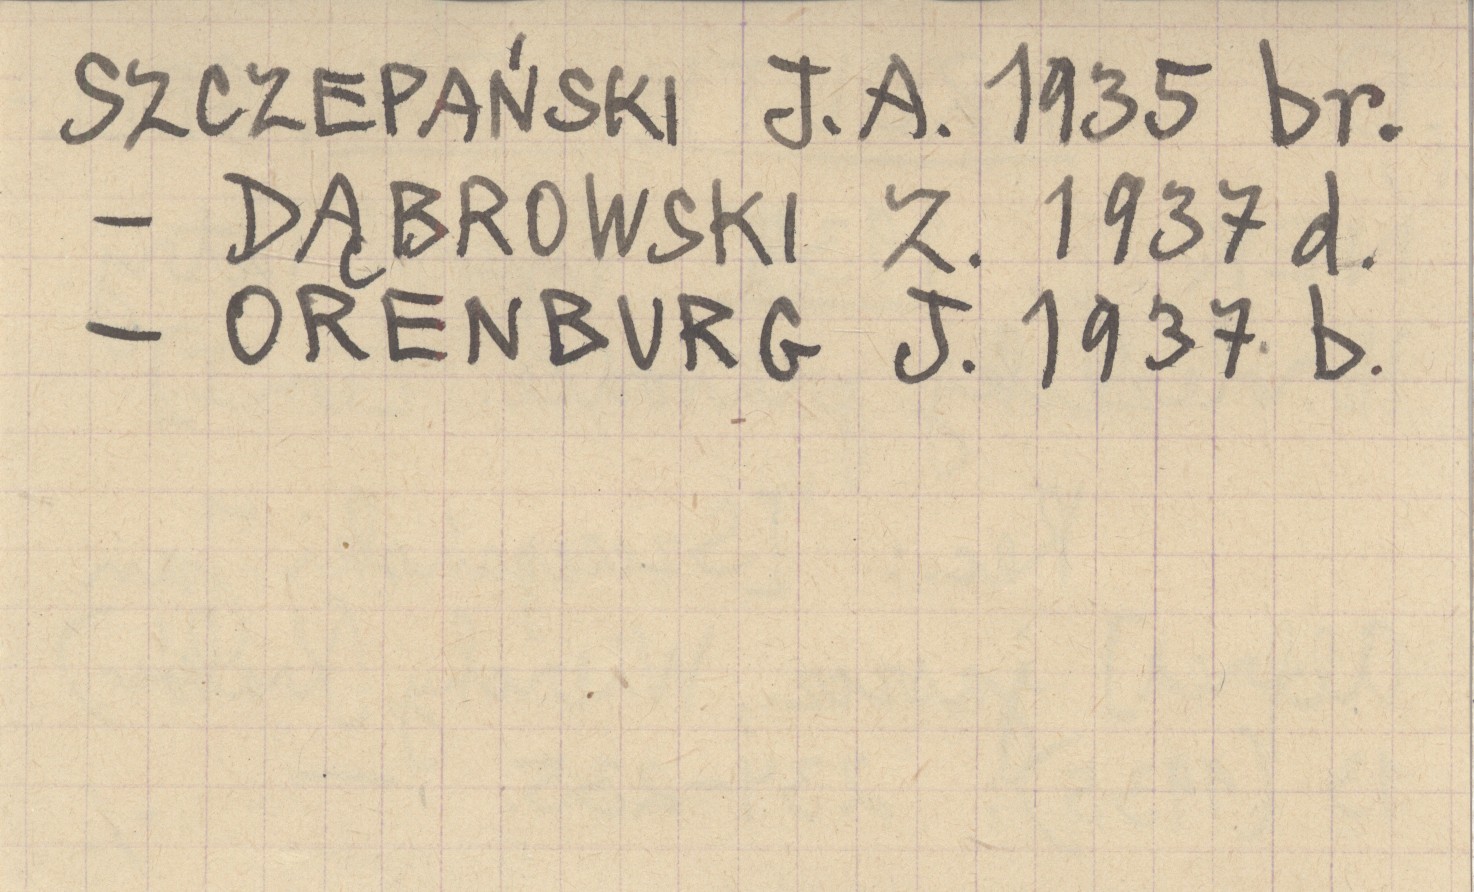 SZCZEPAŃSKI J.A. 1935 br.
– DĄBROWSKI Z. 1937 d.
– ORENBURG J. 1937. b.